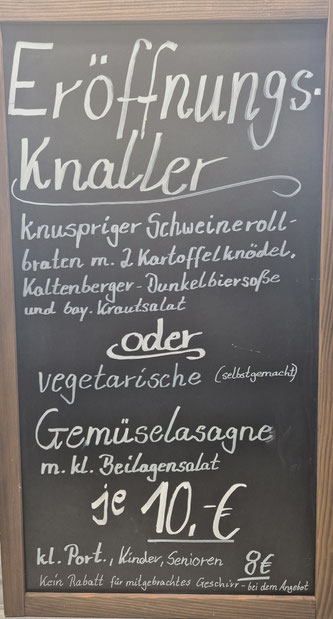 Eröffnungs-
Knaller
knuspriger Schweineroll-
braten m. 2 Kartoffelknödel,
Kaltenberger-Dunkelbiersoße
und bay. Krautsalat
oder
vegetarische (selbstgemacht)
Gemüselasagne
m. kl. Beilagensalat
je 10,-€
kl. Port., Kinder, Senioren 8€
Kein Rabatt für mitgebrachtes Geschirr - bei dem Angebot